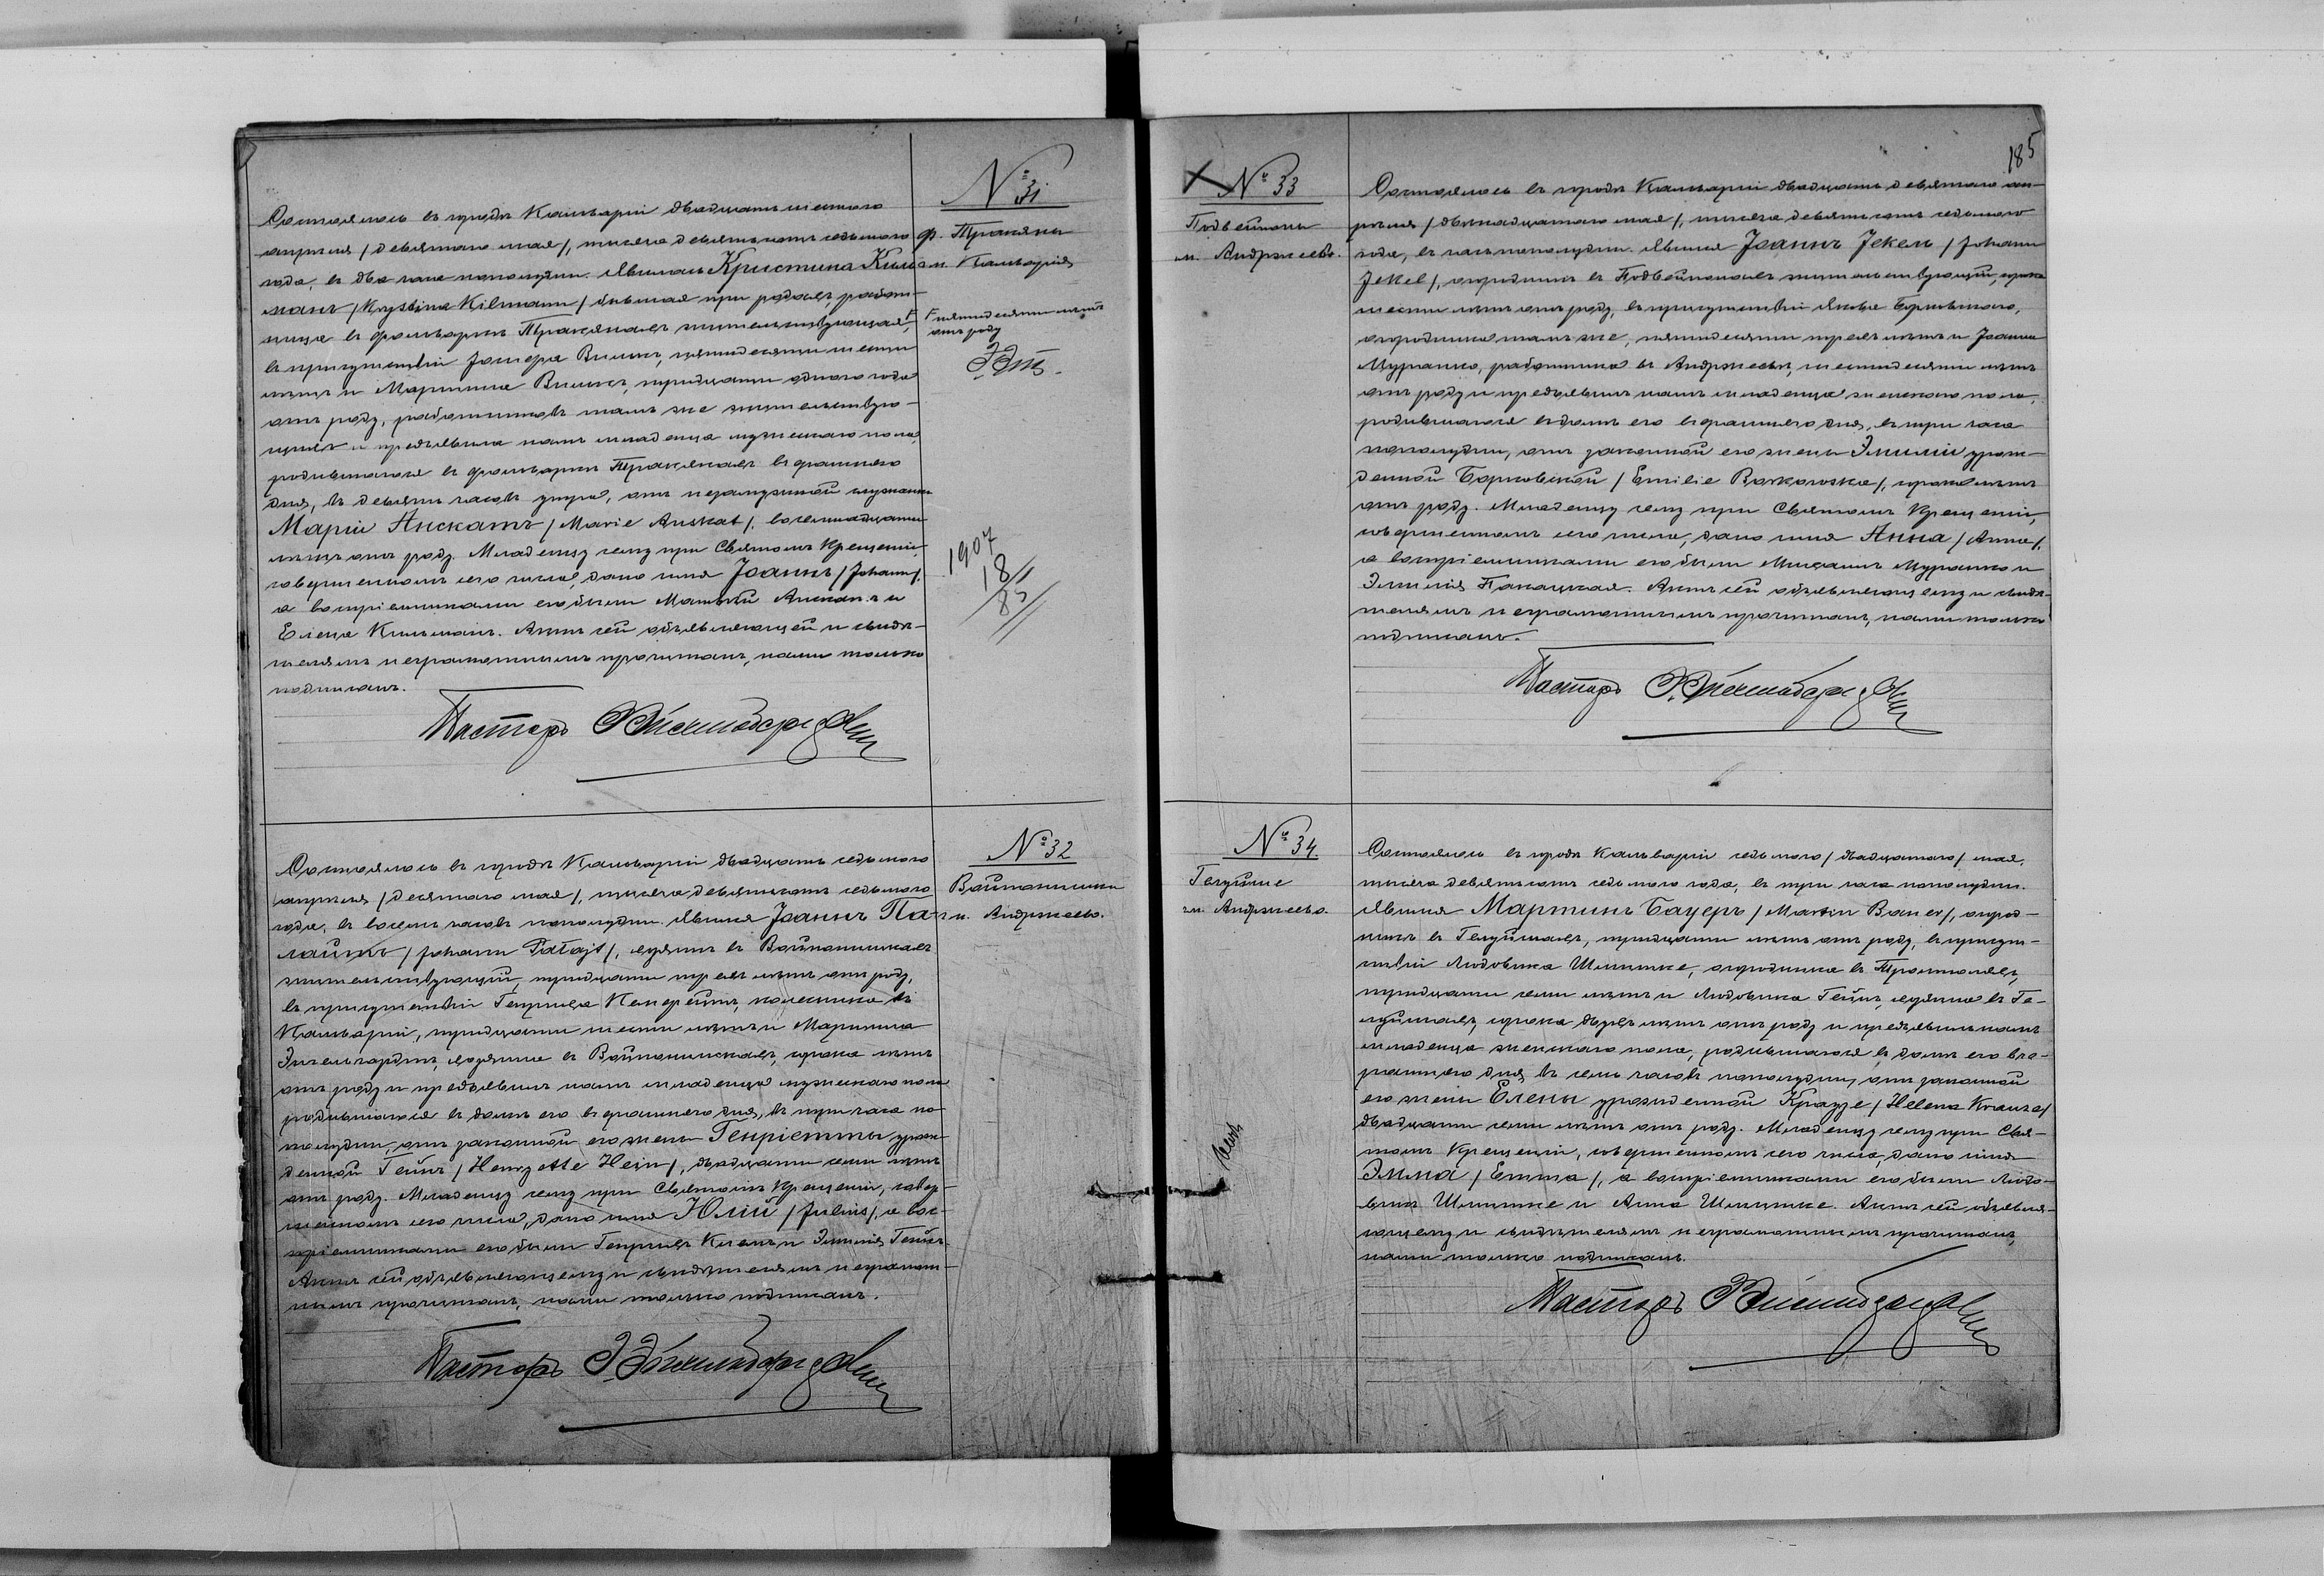 № 31
ф. Тракяны
гм. Кальварія
Состоялось въ городѣ Кальваріи двадцать шестого
апрѣля /девятаго мая/, тысяча девятьсотъ седьмого
года, въ два часа пополудни. Явилась Кристина Киль-
манъ /Krystina Kilmann/ бывшая при родахъ, работ-
ница въ фольваркѣ Тракянахъ жительствующая,
пятидесяти лѣтъ
отъ роду
въ присутствіи пятидесяти шести
лѣтъ и Мартина тридцати одного года
отъ роду, работниковъ тамъ же жительствую-
щихъ и предъявила намъ младенца мужескаго пола,
родившагося въ фольваркѣ Тракянахъ вчерашняго
дня, въ девять часовъ утра, отъ незамужной служанки
Маріи Анскатъ /Marie Anskat/, восемнадцати
лѣтъ отъ роду. Младенцу сему при Святомъ Крещеніи,
совершенномъ сего числа, дано имя Іоаннъ /Johann/,
а воспріемниками его были и
Елена Кильманъ. Актъ сей объявляющей и свидѣ-
телямъ неграмотнымъ прочитанъ, нами только
подписанъ.
Пасторъ
1907
18/
85
№ 32
Войтопишки
гм. Андржеево.
Состоялось въ городѣ Кальваріи двадцать седьмого
апрѣля /десятаго мая/, тысяча девятьсотъ седьмого
года, въ восемь часовъ пополудни. Явился Іоаннъ Па-
лайтъ /Johann Patajt/, въ
жительствующій, тридцати трехъ лѣтъ отъ роду,
въ присутствіи Генриха колесника въ
Кальваріи, тридцати шести лѣтъ и Мартина
въ сорока лѣтъ
отъ роду и предъявилъ намъ младенца мужескаго пола
родившагося въ домѣ его вчерашняго дня, въ три часа по-
полудни, отъ законной его жены Генріетты урож-
денной Гейнъ /Henryette Hejn/, двадцати семи лѣтъ
отъ роду. Младенцу сему при Святомъ Крещеніи, совер-
шенномъ сего числа, дано имя Юлій /Julius/, а вос-
пріемниками его были Генрихъ и Эмилія Гейнъ.
Актъ сей объявляющему и свидѣтелямъ неграмот-
нымъ прочитанъ, нами только подписанъ.
Пасторъ
185
№ 33
Подвейтоны
гм. Андржеево.
Состоялось въ городѣ Кальваріи двадцать девятаго ап-
рѣля /двѣнадцатаго мая/, тысяча девятьсотъ седьмого
года, въ часъ пополудни. Явился Іоаннъ Іекель /Johann
Jekel/, огородникъ въ жительствующій, сорока
шести лѣтъ отъ роду, въ присутствіи Якова
огородника тамъ же, пятидесяти трехъ лѣтъ и Іоанна
Мурашко, работника въ Андржеевѣ, шестидесяти лѣтъ
отъ роду и предъявилъ намъ младенца женскаго пола,
родившагося въ домѣ его вчерашняго дня, въ три часа
пополудни, отъ законной его жены Эмиліи урож-
денной Борковской /Emilie Borkowska/, сорока лѣтъ
отъ роду. Младенцу сему при Святомъ Крещеніи,
совершенномъ сего числа, дано имя Анна /Anna/,
а воспріемниками его были Мурашко и
Эмилія Актъ сей объявляющему и свидѣ-
телямъ неграмотнымъ прочитанъ, нами только
подписанъ.
Пасторъ
№ 34
Гелуйше
гм. Андржеево.
Состоялось въ городѣ Кальваріи седьмого /двадцатаго/ мая,
тысяча девятьсотъ седьмого года, въ три часа пополудни.
Явился Мартинъ Бауеръ /Martin Bauer/, огород-
никъ въ Гелуйшахъ, тридцати лѣтъ отъ роду, въ присут-
ствіи Людовика Шимшке, огородника въ
тридцати семи лѣтъ и Людовика Гейнъ, въ Ге-
луйшахъ, сорока двухъ лѣтъ отъ роду и предъявилъ намъ
младенца женскаго пола, родившагося въ домѣ его вче-
рашняго дня, въ семь часовъ пополудни, отъ законной
его жены Елены урожденной Краузе /Helena Krauze/
двадцати семи лѣтъ отъ роду. Младенцу сему при Свя-
томъ Крещеніи, совершенномъ сего числа, дано имя
Эмма /Emma/, а воспріемниками его были Людо-
викъ Шимшке и Анна Шимшке. Актъ сей объявля-
ющему и свидѣтелямъ неграмотнымъ прочитанъ,
нами только подписанъ.
Пасторъ